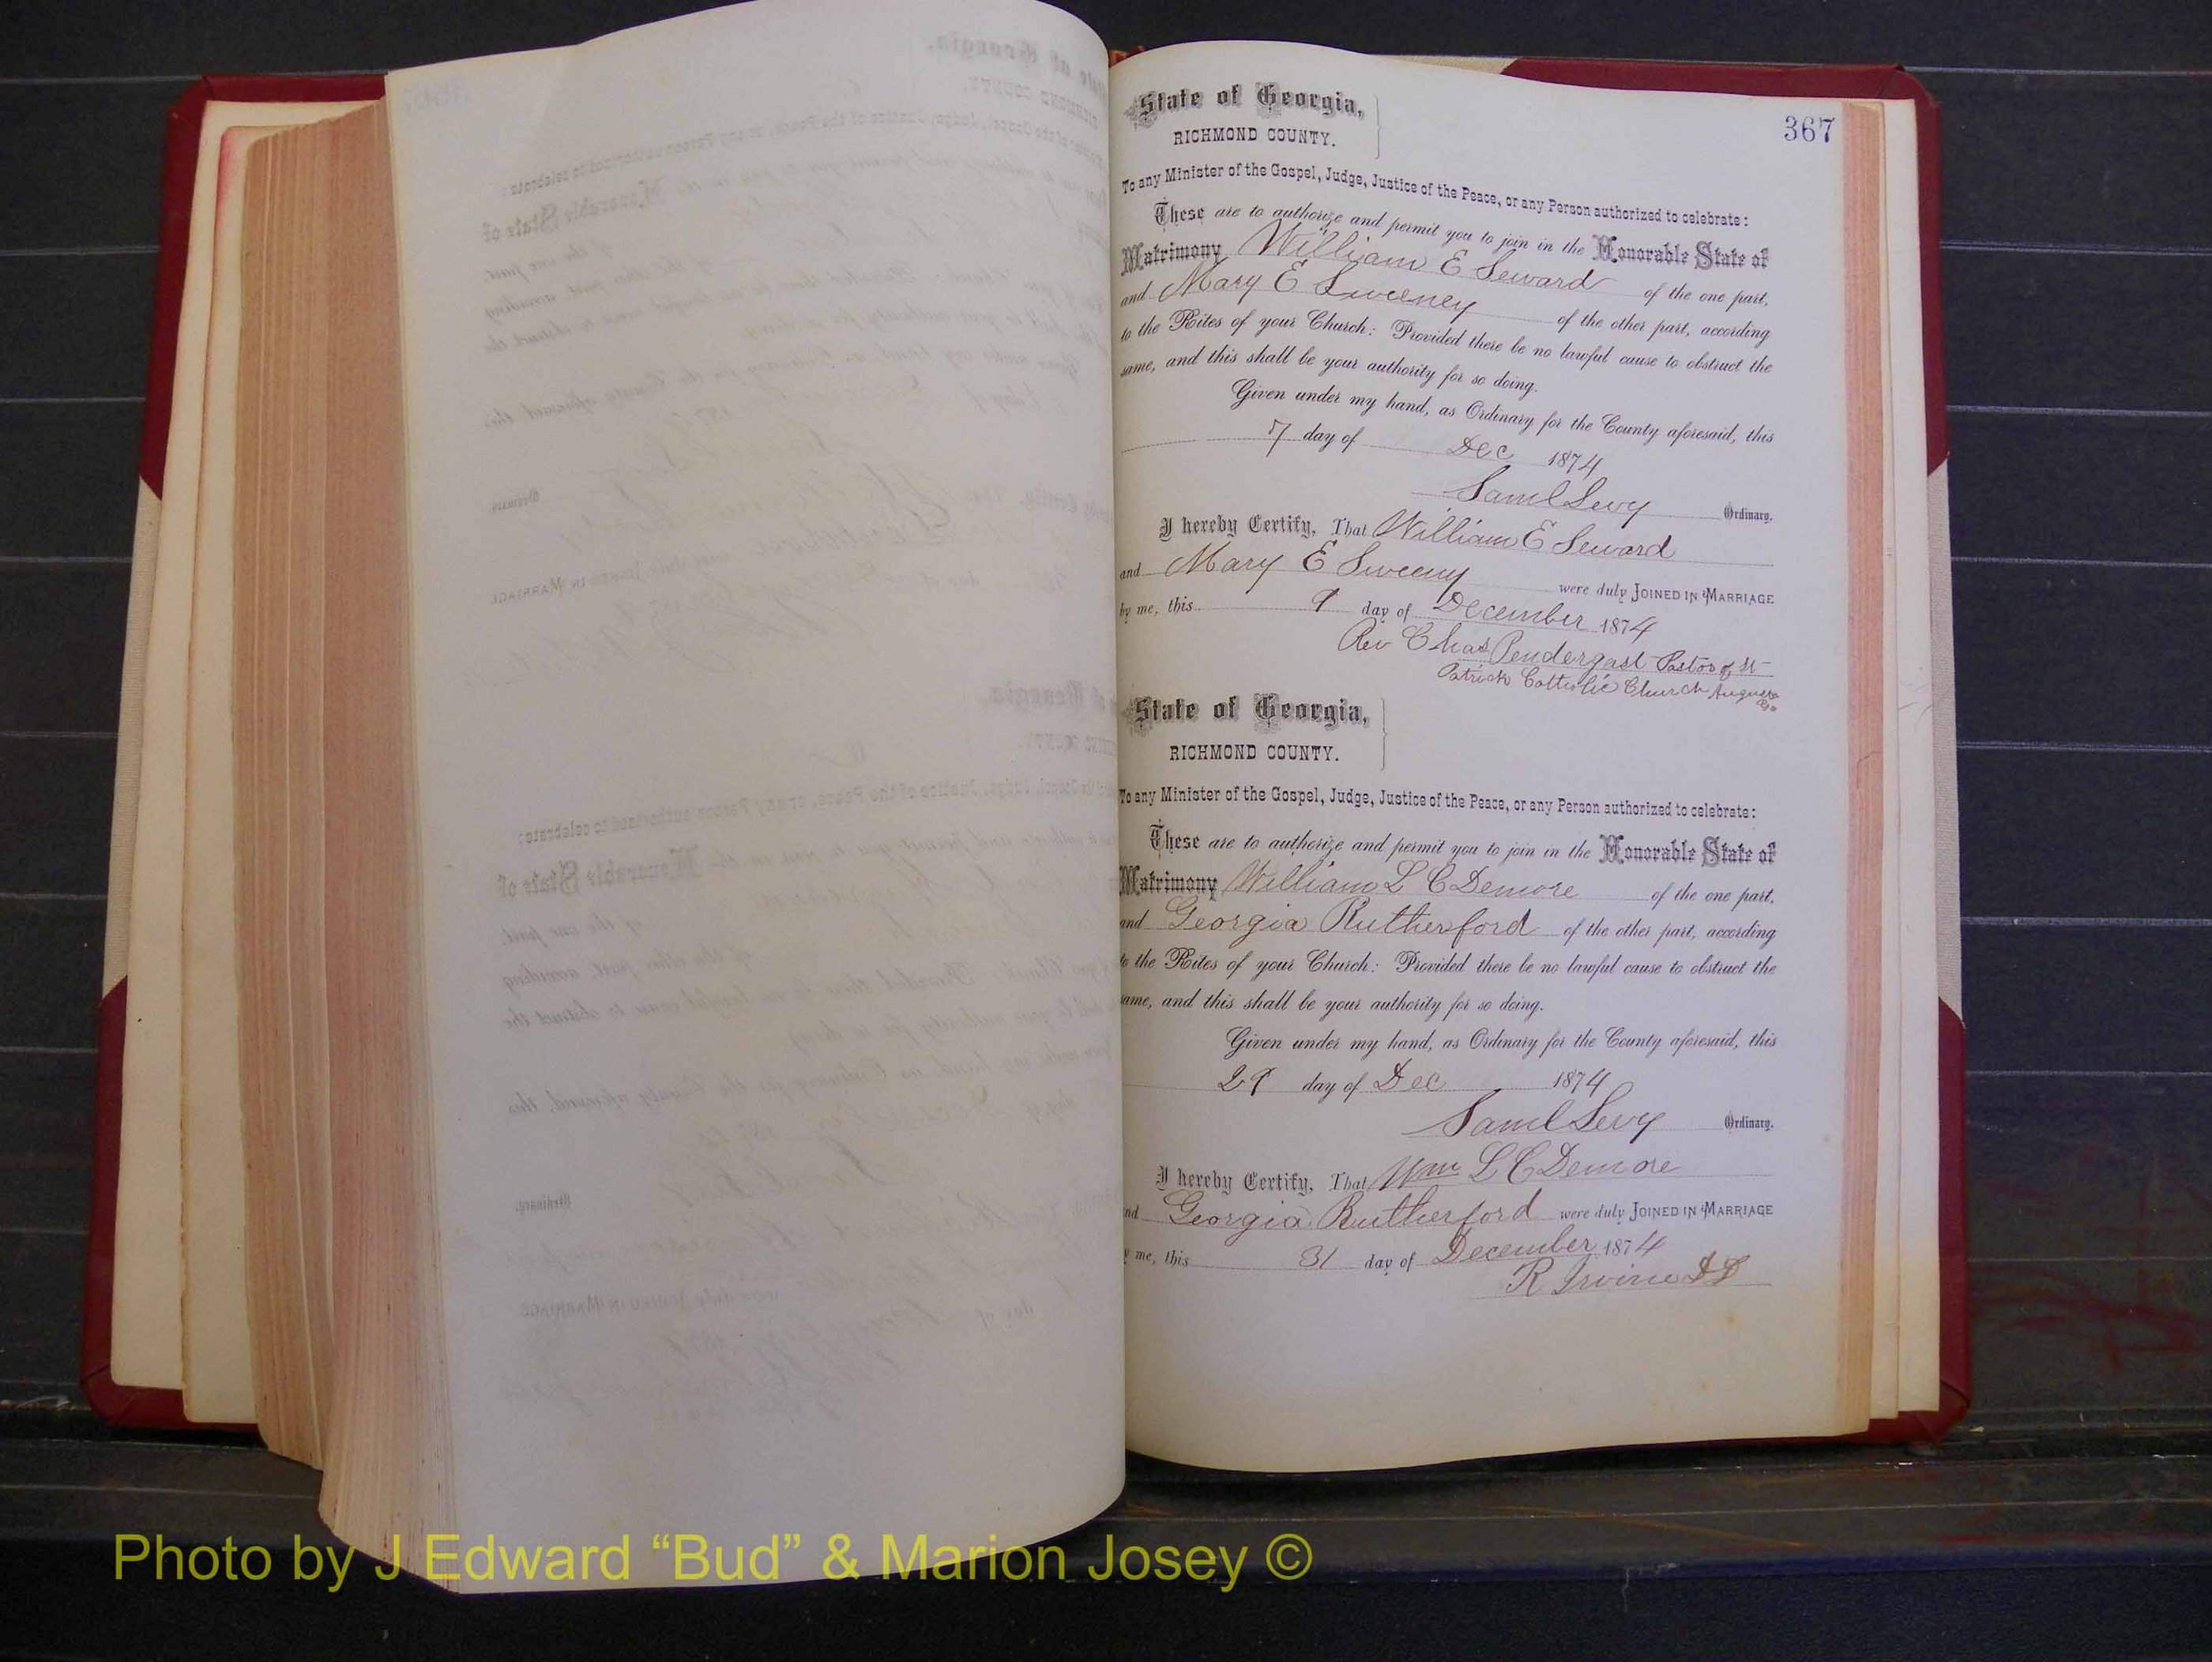 367
State of Georgia,
RICHMOND COUNTY.
To any Minister of the Gospel, Judge, Justice of the Peace, or any Person authorized to celebrate:
These are to authorize and permit you to join in the Honorable State of
Matrimony William E Seward of the one part,
and Mary E Sweeney of the other part, according
to the Rites of your Church: Provided there be no lawful cause to obstruct the
same, and this shall be your authority for so doing.
Given under my hand, as Ordinary for the County aforesaid, this
7 day of Dec 1874
Saml Levy Ordinary.
I hereby Certify, That William E Seward
and Mary E Sweeny were duly JOINED IN MARRIAGE
by me, this 9 day of December 1874
Rev Chas Pendergast Pastor of St
Patrick Catholic Church Augusta
Ga
State of Georgia,
RICHMOND COUNTY.
To any Minister of the Gospel, Judge, Justice of the Peace, or any Person authorized to celebrate:
These are to authorize and permit you to join in the Honorable State of
Matrimony William L C Demore of the one part,
and Georgia Rutherford of the other part, according
to the Rites of your Church: Provided there be no lawful cause to obstruct the
same, and this shall be your authority for so doing.
Given under my hand, as Ordinary for the County aforesaid, this
29 day of Dec 1874
Saml Levy Ordinary.
I hereby Certify, That Wm L C Demore
and Georgia Rutherford were duly JOINED IN MARRIAGE
by me, this 31 day of December 1874
R Irvine DD
Photo by J Edward “Bud” & Marion Josey ©